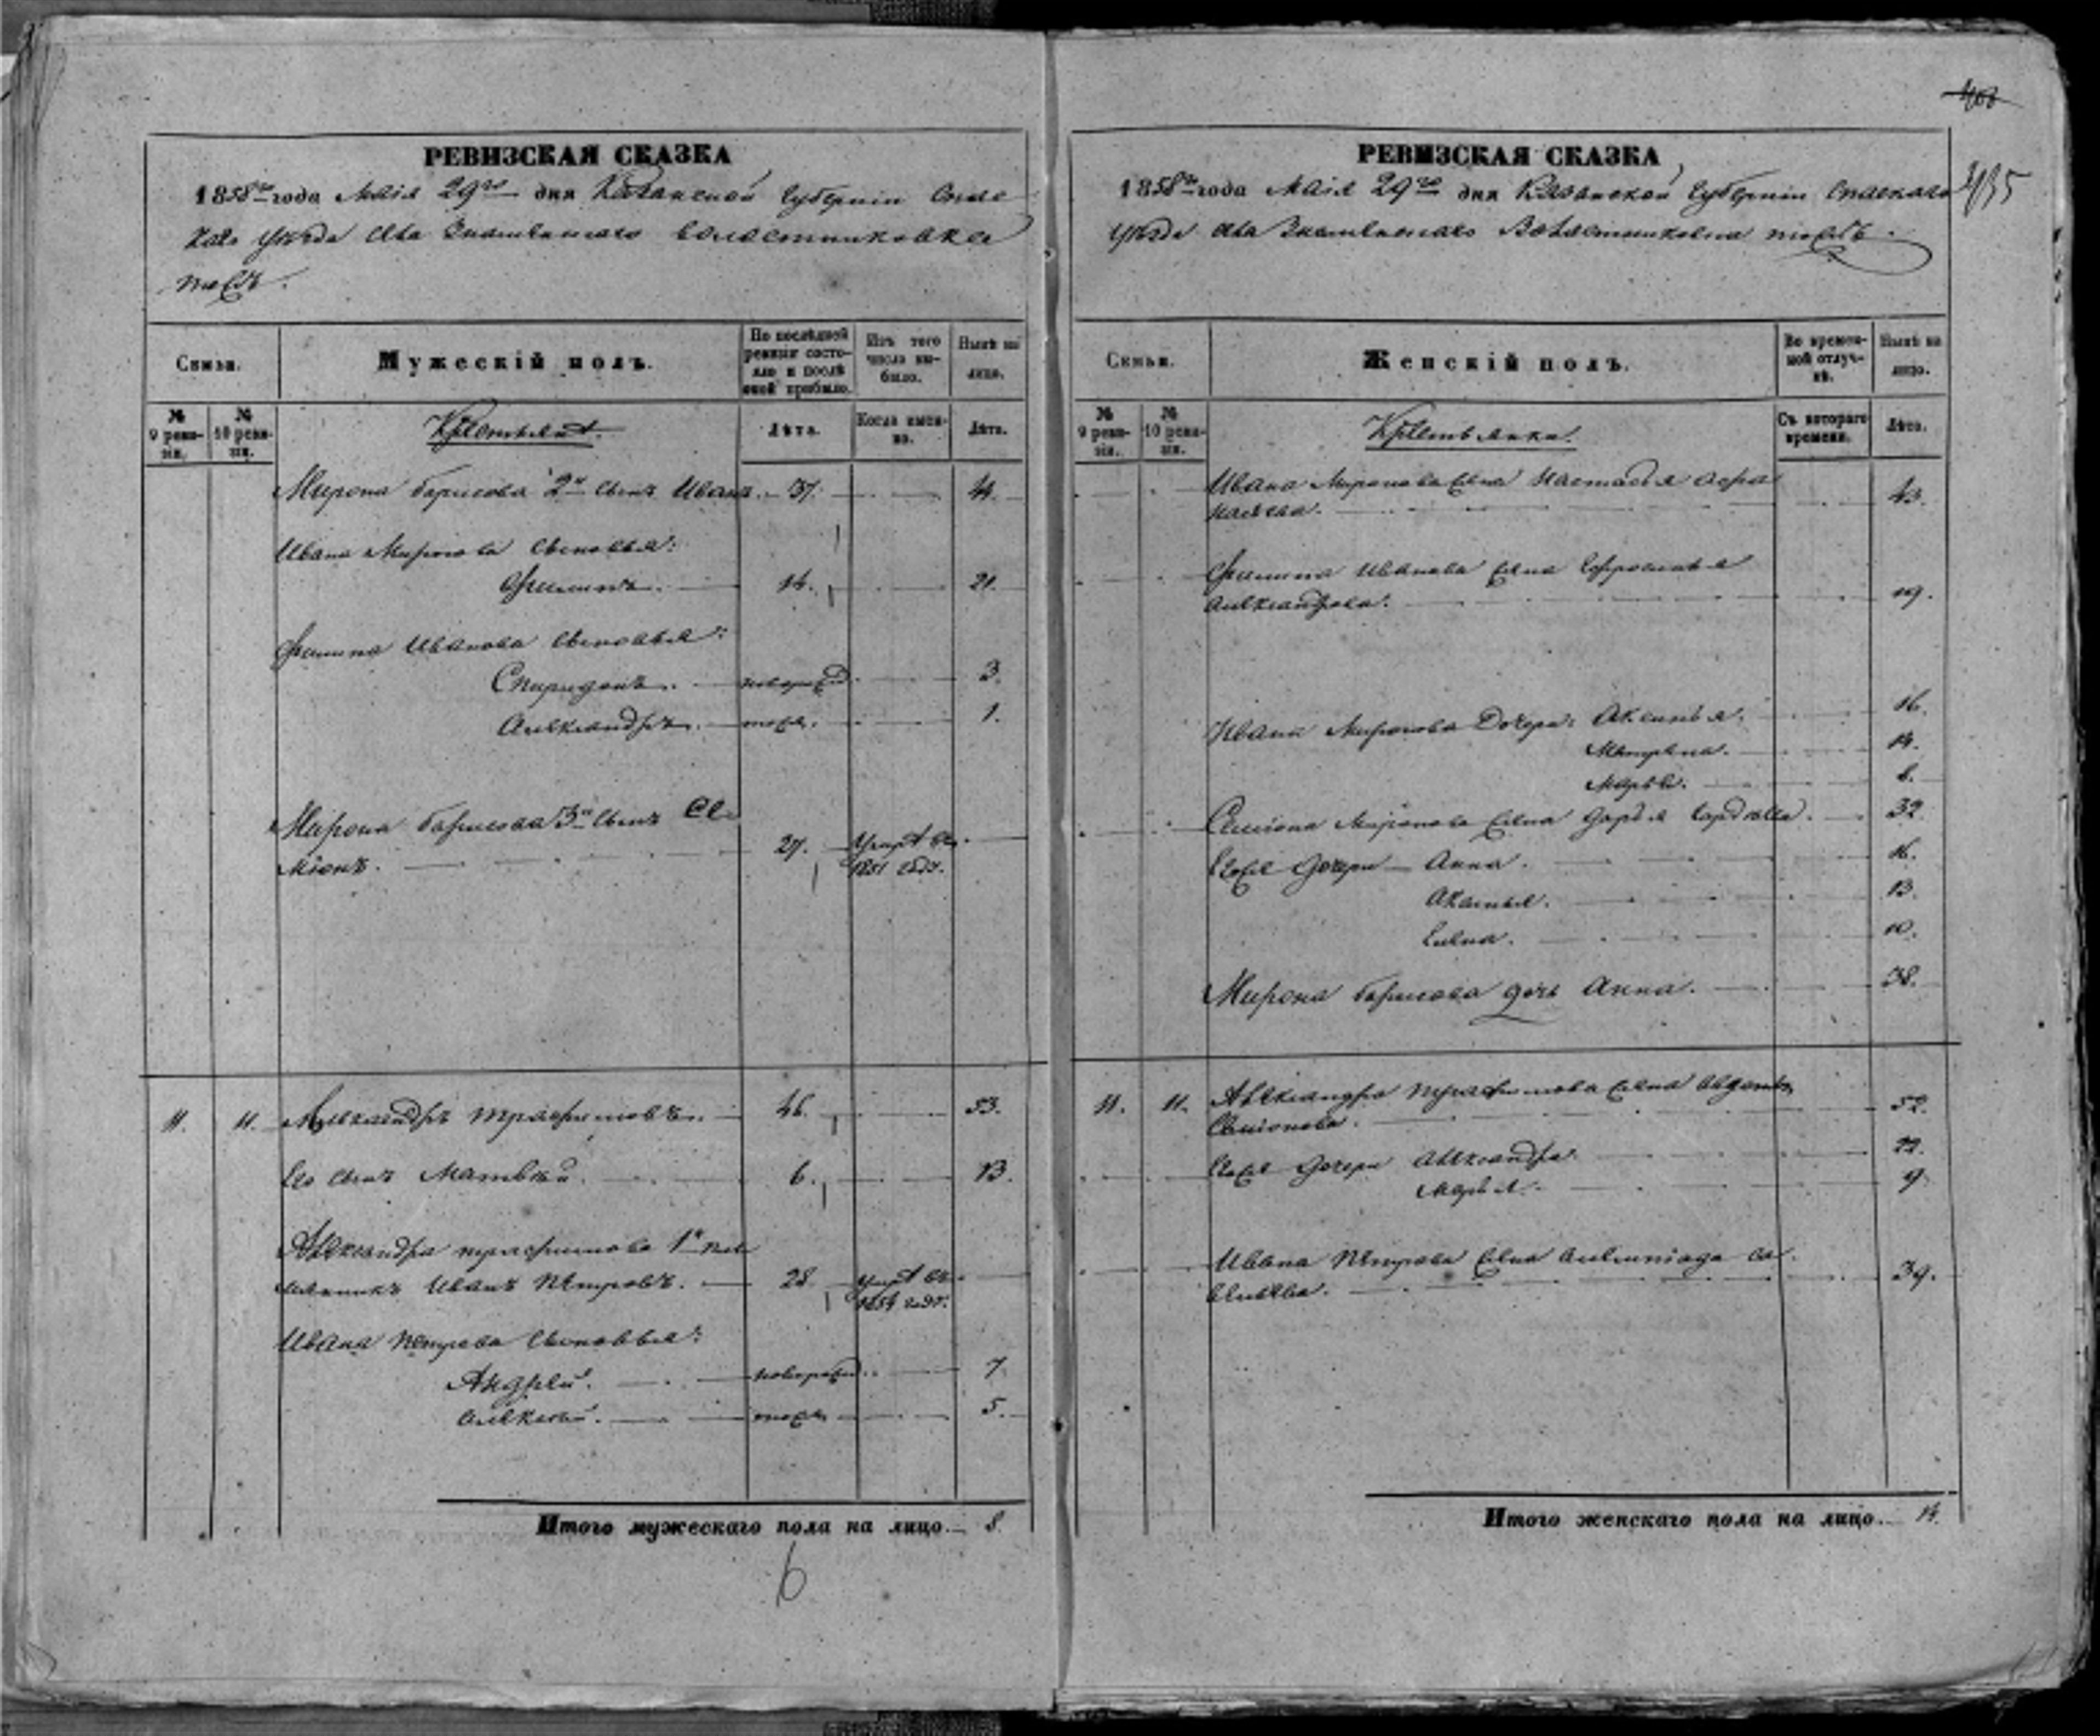 408
435
РЕВИЗСКАЯ СКАЗКА
1858го года Маія 29го дня Казанской Губерніи Спас
каго Уѣзда села Знаменскаго Волостниковка
тожъ.
Семьи.
Мужескій полъ.
По послѣдней ревизіи состояло и послѣ оной прибыло.
Изъ того числа выбыло.
Нынѣ на лицо.
№ 9 ревизіи.
№ 10 ревизіи.
Крестьяне.
Лѣта.
Когда именно.
Лѣта.
Мирона Борисова 2й сынъ Иванъ. 37. 44.
Ивана Миронова сыновья:
Филипъ. 14. 21.
Филипа Иванова сыновья:
Спиридонъ. новорожд. 3.
Александръ. тоже. 1.
Мирона Борисова 3й сынъ Се
міонъ. 27. Умре въ
1851 году.
11. 11. Александръ Трафимовъ. 46. 53.
Его сынъ Матвѣй. 6. 13.
Александра Трафимова 1й пле
мянникъ Иванъ Петровъ. 28. Умре въ
1854 году.
Ивана Петрова сыновья:
Андрей. новорожд. 7
Алексѣй. тоже 5.
Итого мужескаго пола на лицо. 8.
6
РЕВИЗСКАЯ СКАЗКА
1858го года Маія 29го дня Казанской Губерніи Спаскаго
Уѣзда села Знаменскаго Волостниковка тожъ.
Семьи.
Женскій полъ.
Во временной отлучкѣ.
Нынѣ на лицо.
№ 9 ревизіи.
№ 10 ревизіи.
Крестьянки.
Съ котораго времени.
Лѣта.
Ивана Миронова жена Настасья Афа
насьева. 43.
Филипа Иванова жена Ефросинья
Александрова. 19.
Ивана Миронова дочери: Аксинья. 16.
Матрена. 14.
Марья. 8.
Семіона Миронова жена Дарья 32.
Егоже дочери Анна. 16.
13.
Елена. 10.
Мирона Борисова дочь Анна. 38.
11. 11. Александра Трафимова жена Авдотья
Семіонова. 52.
Егоже дочери Александра. 22.
Марья. 9
Ивана Петрова жена Са
велѣева. 39.
Итого женскаго пола на лицо. 14.